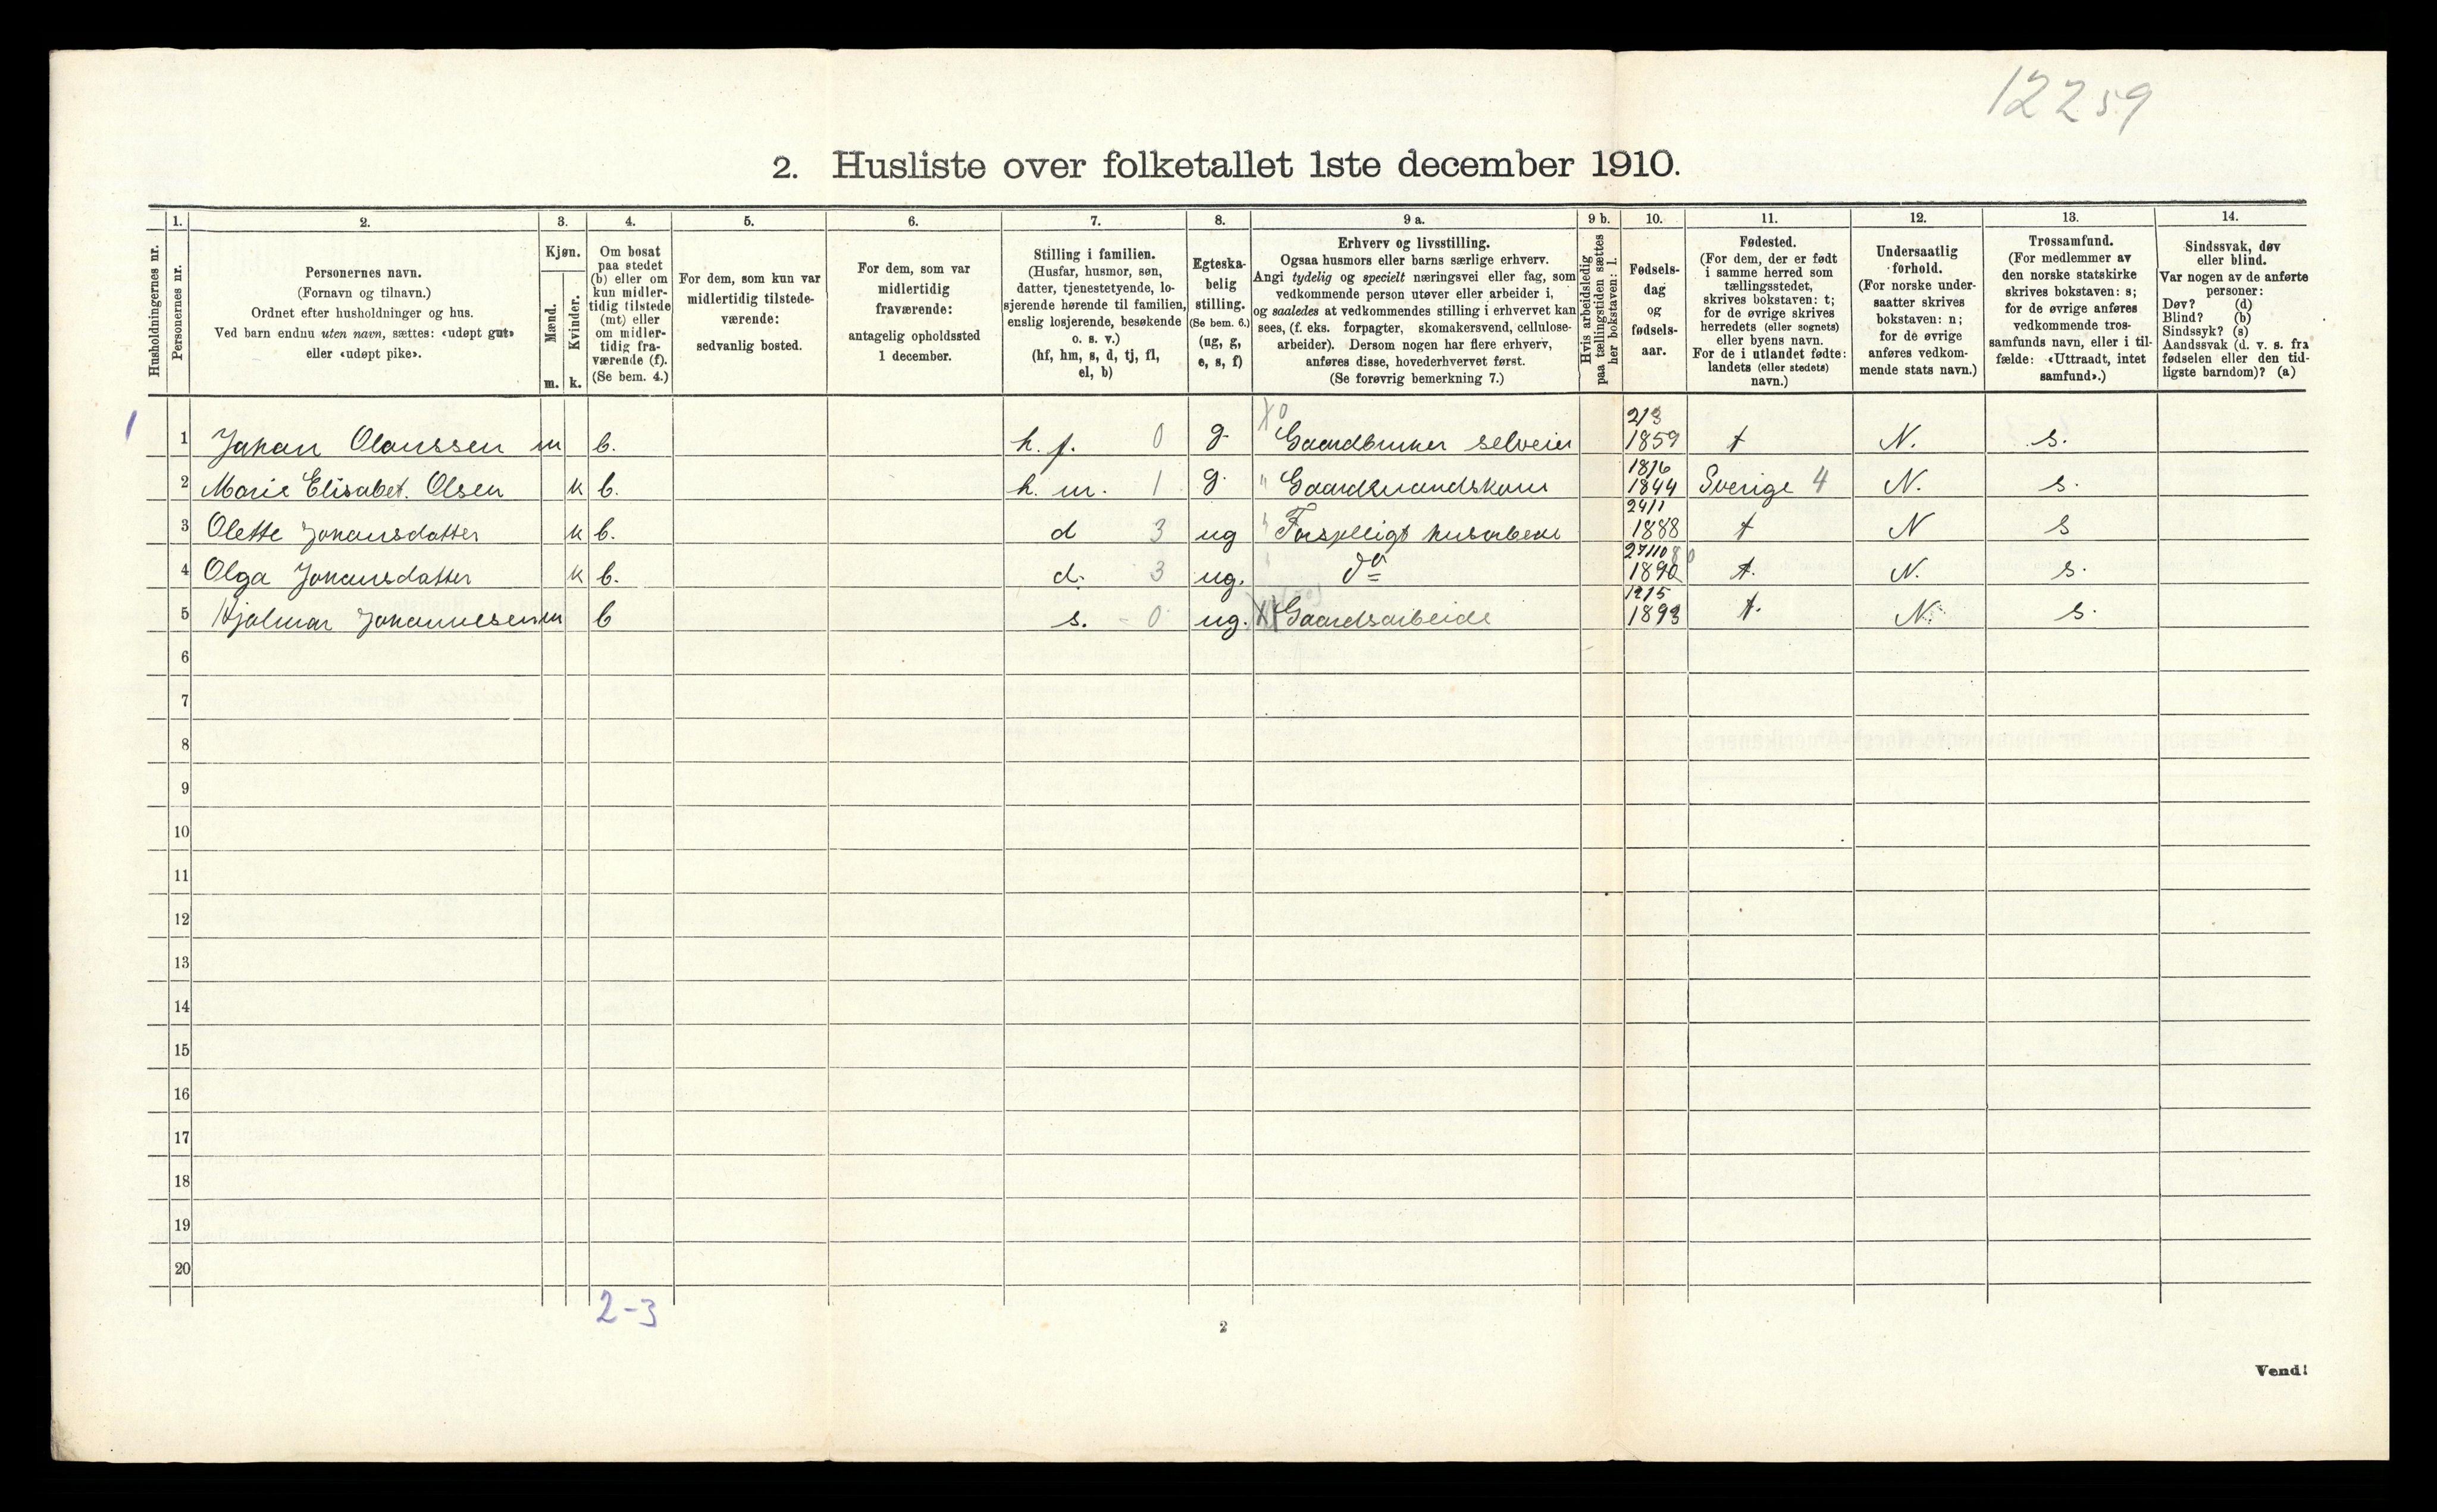 12259
2. Husliste over folketallet 1ste december 1910.
1. 2. 3. 4. 5. 6. 7. 8. 9 a. 9 b. 10. 11. 12. 13. 14.
Husholdningernes nr.
Personernes nr.
Personernes navn.
(Fornavn og tilnavn.)
Ordnet efter husholdninger og hus.
Ved barn endnu uten navn, sættes: «udøpt gut»
eller «udøpt pike».
Kjøn.
Mænd.
Kvinder.
m. k.
Om bosat
paa stedet
(b) eller om
kun midler-
tidig tilstede
(mt) eller
om midler-
tidig fra-
værende (f).
(Se bem. 4.)
For dem, som kun var
midlertidig tilstede-
værende:
sedvanlig bosted.
For dem, som var
midlertidig
fraværende:
antagelig opholdssted
1 december.
Stilling i familien.
(Husfar, husmor, søn,
datter, tjenestetyende, lo-
sjerende hørende til familien,
enslig losjerende, besøkende
o. s. v.)
(hf, hm, s, d, tj, fl,
el, b)
Egteska-
belig
stilling.
(Se bem. 6.)
(ug, g,
e, s, f)
Erhverv og livsstilling.
Ogsaa husmors eller barns særlige erhverv.
Angi tydelig og specielt næringsvei eller fag, som
vedkommende person utøver eller arbeider i,
og saaledes at vedkommendes stilling i erhvervet kan
sees, (f. eks. forpagter, skomakersvend, cellulose-
arbeider). Dersom nogen har flere erhverv,
anføres disse, hovederhvervet først.
(Se forøvrig bemerkning 7.)
Hvis arbeidsledig
paa tællingstiden sættes
her bokstaven: l.
Fødsels-
dag
og
fødsels-
aar.
Fødested.
(For dem, der er født
i samme herred som
tællingsstedet,
skrives bokstaven: t;
for de øvrige skrives
herredets (eller sognets)
eller byens navn.
For de i utlandet fødte:
landets (eller stedets)
navn.)
Undersaatlig
forhold.
(For norske under-
saatter skrives
bokstaven: n;
for de øvrige
anføres vedkom-
mende stats navn.)
Trossamfund.
(For medlemmer av
den norske statskirke
skrives bokstaven: s;
for de øvrige anføres
vedkommende tros-
samfunds navn, eller i til-
fælde: «Uttraadt, intet
samfund».)
Sindssvak, døv
eller blind.
Var nogen av de anførte
personer:
Døv? (d)
Blind? (b)
Sindssyk? (s)
Aandssvak (d. v. s. fra
fødselen eller den tid-
ligste barndom)? (a)
1 1 Johan Olaussen m b. h. f. 0 g. X0 Gaardbruker selveier 2/3 1859 t N. s.
2 Marie Elisabet. Olsen k b. h. m. 1 g. " Gaardmandskone 18/6 1844 Sverige 4 N. s.
3 Olette Johansdatter k b. d 3 ug " Forsjelligt husarbeide 24/1 1888 t N s
4 Olga Johansdatter k b. d. 3 ug. " do 27/10 1890 t. N. s.
5 Hjalmar Johannesen m b s. - 0 ug. Gaardsarbeide 12/5 1893 t. N. s.
6
7
8
9
10
11
12
13
14
15
16
17
18
19
20
2-3
2
Vend!